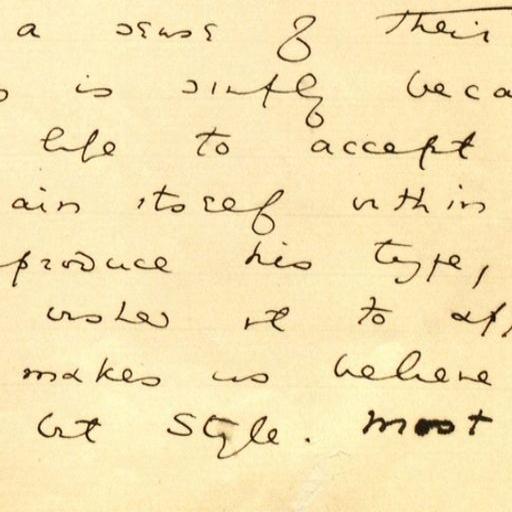 a sense of their
is simply beca
life to accept
ain itself within
produce his type,
wishes it to ap
makes us believe
but style. most